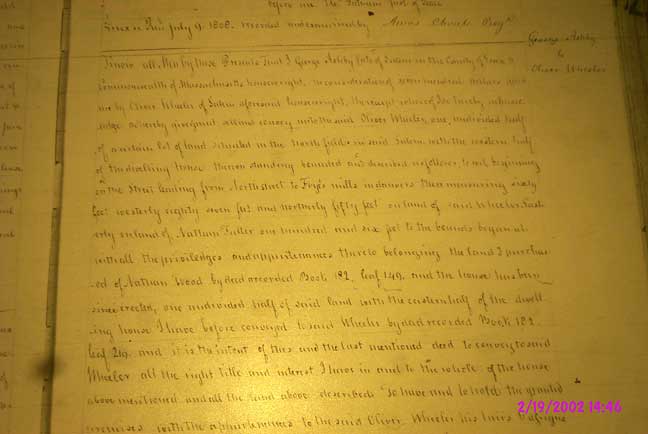 before me
Essex ss Rec'd July 9. 1808. recorded and examined by Amos Choate Reg'r
George Ashby
to
Oliver Wheeler
Know all Men by these Presents that I George Ashby of Salem in the County of Essex &
Commonwealth of Massachusetts housewright, in consideration of seven hundred dollars paid
me by Oliver Wheeler of Salem aforesaid housewright, the receipt whereof I do hereby acknow
ledge do hereby give, grant, sell and convey unto the said Oliver Wheeler, one undivided half
of a certain lot of land situated in the North fields in said Salem with the western half
of the dwelling house thereon standing bounded and described as follows, to wit, beginning
on the Street leading from North street to Frye's mills in danvers there measuring sixty
feet westerly eighty seven feet and northerly fifty feet on land of said Wheeler East
erly on land of Nathan Fuller one hundred and six feet to the bounds began at.
with all the priviledges and appurtenances thereto belonging the land I purchas
ed of Nathan Wood by deed recorded Book 182. leaf 149. and the house has been
since erected, one undivided half of said land with the eastern half of the dwell
ing house I have before conveyed to said Wheeler by deed recorded Book 182
leaf 219. and it is the intent of this and the last mentioned deed to convey to said
Wheeler all the right title and interest I have in and to the whole of the house
above mentioned and all the land above described To have and to hold the granted
premises with the appurtenances to the said Oliver Wheeler his heirs & assigns
2/19/2002 14:46